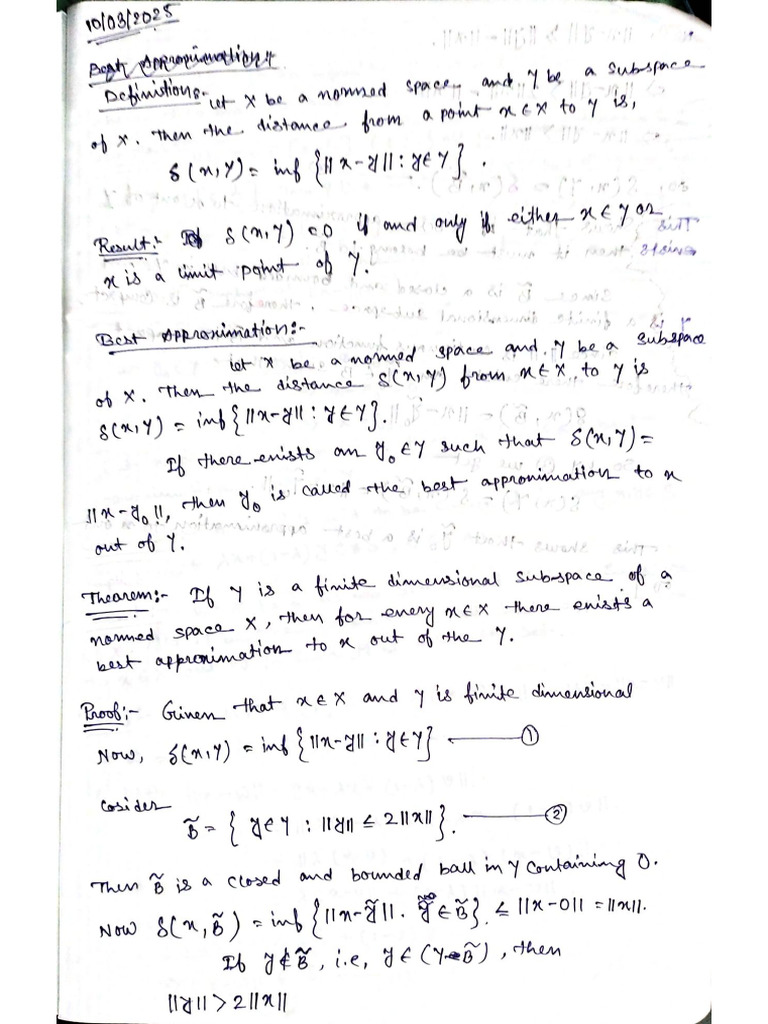 10/03/2025
Best Approximation:-
Definition:- Let X be a normed space and Y be a subspace
of X. Then the distance from a point x∈X to Y is,
δ(x,Y) = inf {||x-y|| : y∈Y}.
Result:- If δ(x,Y) = 0 if and only if either x∈Y or
x is a limit point of Y.
Best Approximation:-
Let X be a normed space and Y be a subspace
of X. Then the distance δ(x,Y) from x∈X to Y is
δ(x,Y) = inf{||x-y|| : y∈Y}.
If there exists an y₀∈Y such that δ(x,Y) =
||x-y₀||, then y₀ is called the best approximation to x
out of Y.
Theorem:- If Y is a finite dimensional subspace of a
normed space X, then for every x∈X there exists a
best approximation to x out of the Y.
Proof:- Given that x∈X and Y is finite dimensional
Now, δ(x,Y) = inf {||x-y|| : y∈Y} ——— ①
Cosider
B̃ = { y∈Y : ||y|| ≤ 2||x|| }. ——— ②
Then B̃ is a closed and bounded ball in Y containing 0.
Now δ(x,B̃) = inf {||x-ỹ||. ỹ∈B̃} ≤ ||x-0|| = ||x||.
If y∉B̃, i.e, y∈(Y-B̃), then
||y|| > 2||x||